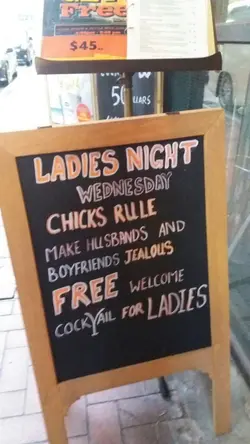 Free
$45
50
LADIES NIGHT
WEDNESDAY
CHICKS RULE
MAKE HUSBANDS AND
BOYFRIENDS JEALOUS
FREE WELCOME
COCKYAIL FOR LADIES